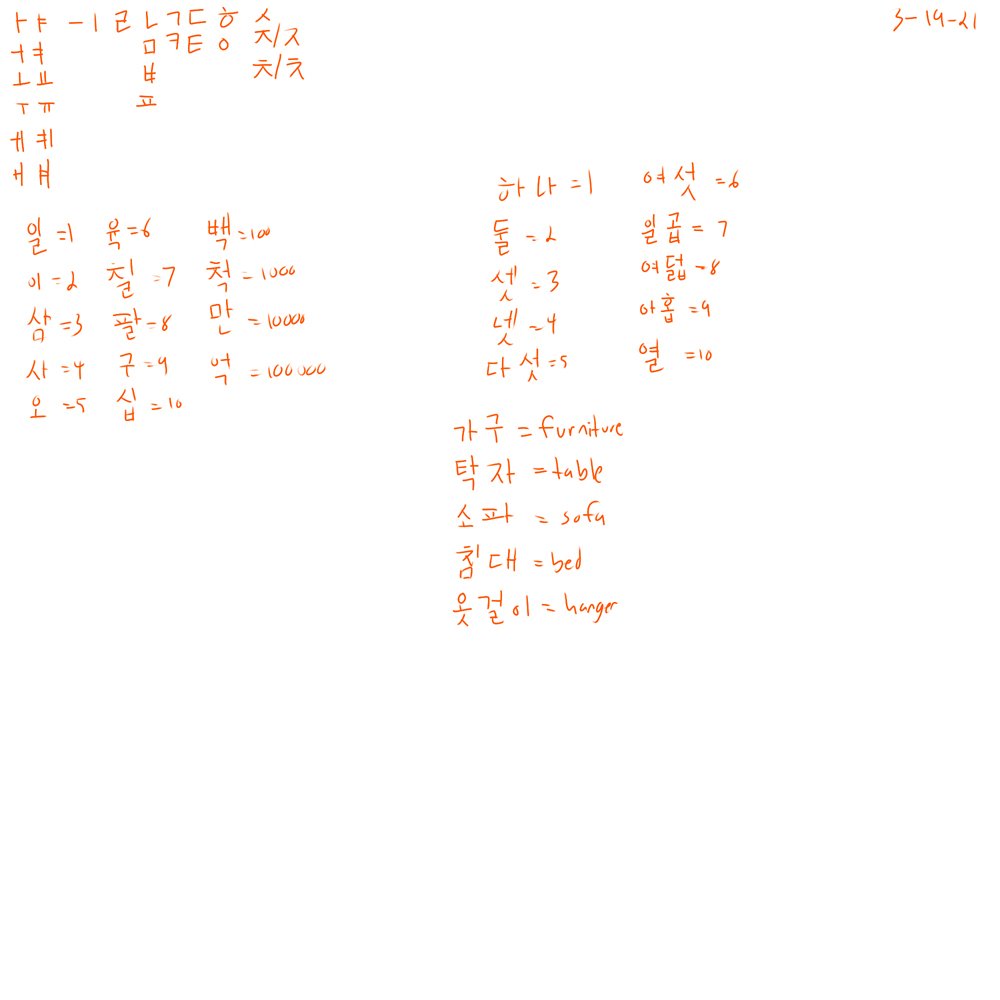 ㅏㅑ ㅡㅣㄹㄴㄱㄷㅎㅅ
ㅓㅕ ㅁㅋㅌㅇㅈ/ㅈ
ㅗㅛ ㅂ ㅊ/ㅊ
ㅜㅠ ㅍ
ㅔㅖ
ㅐㅒ
3-19-21
일=1 육=6 백=100
이=2 칠=7 척=1000
삼=3 팔=8 만=10000
사=4 구=9 억=100000
오=5 십=10
하나=1 여섯=6
둘=2 일곱=7
셋=3 여덟=8
넷=4 아홉=9
다섯=5 열=10
가구=furniture
탁자=table
소파=sofa
침대=bed
옷걸이=hanger